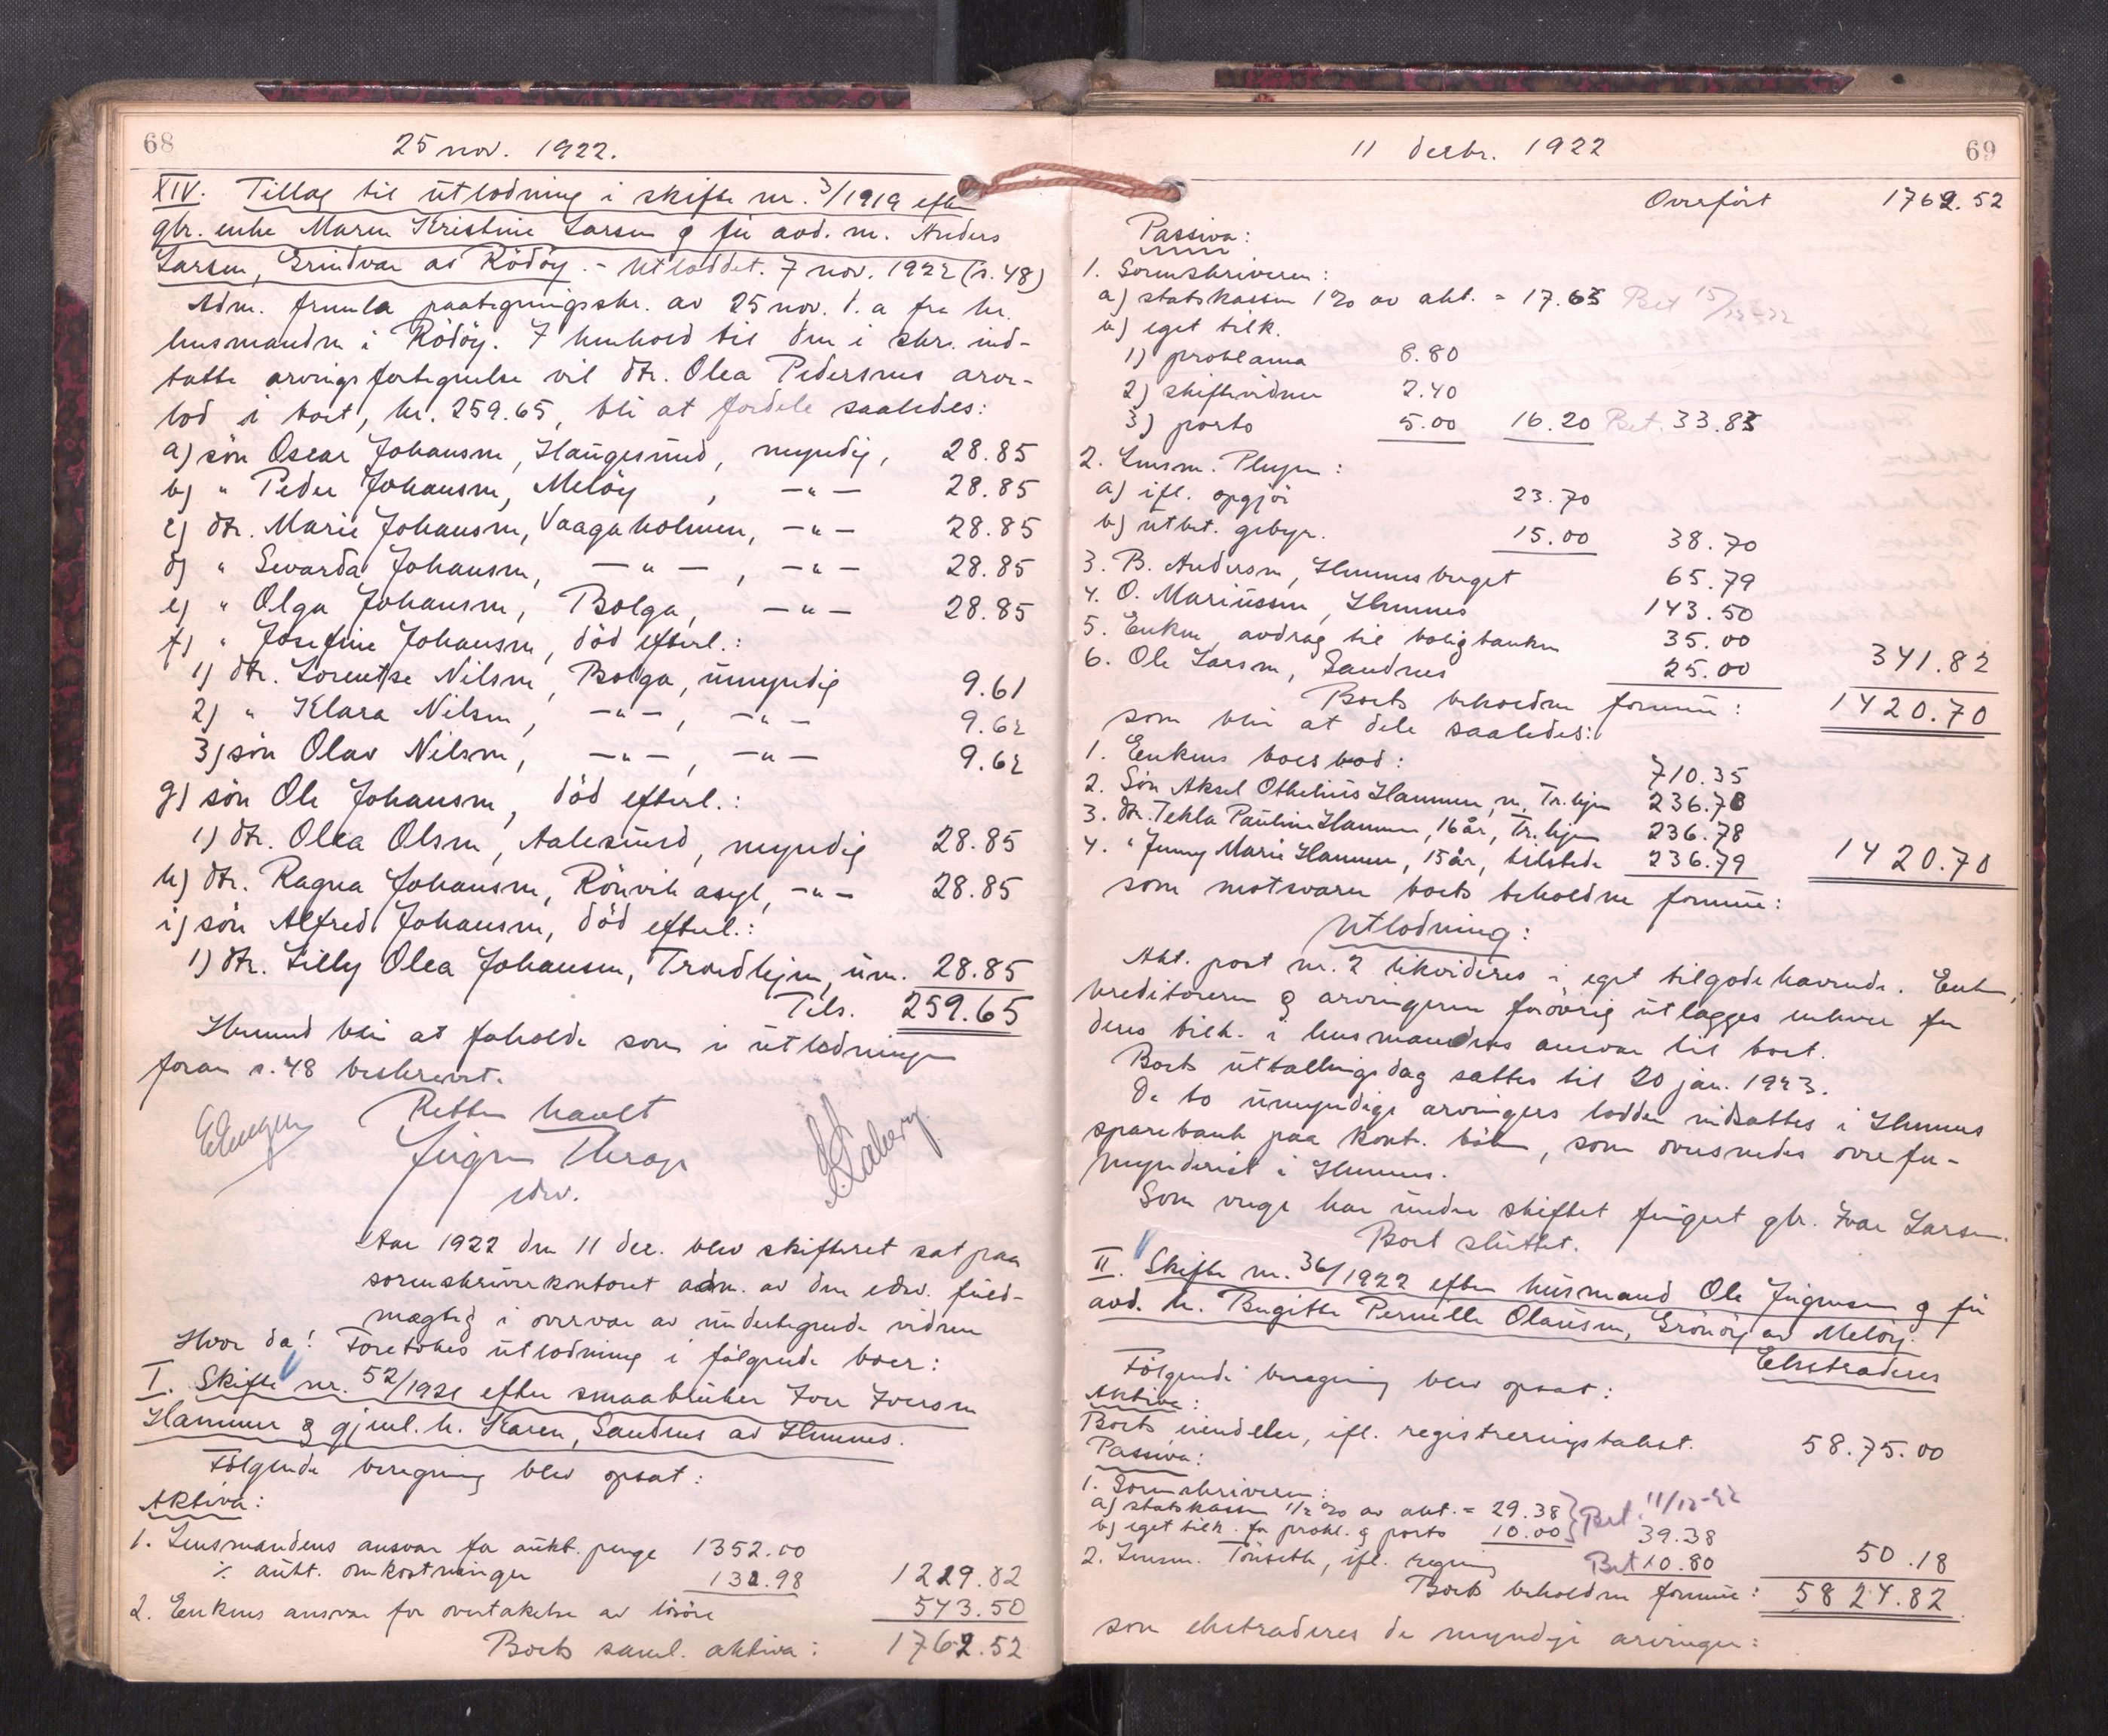 68
25 nov. 1922.
XIV. Tillæg til utlodning i skifte nr. 3/1919 efter
gbr. enke Maren Kristine Larsen & før avd. m. Anders
Larsen, Grindvær av Rödöy. - Utloddet. 7 nov. 1922 (s. 48)
Adm. fremla paategningsskr. av 25 nov. d. a fra hr.
lensmanden i Rödöy. I henhold til den i skr. ind-
tatte arvingsfortegnelse vil dtr. Olea Pedersens arve-
lod i boet, kr. 259.65, bli at fordele saaledes:
a) sön Oscar Johansen, Haugesund, myndig, 28.85
b) " Peder Johansen, Melöy , -"- 28.85
c) dtr. Marie Johansen, Vaagaholmen, -"- 28.85
d) " Sevarda Johansen, -"-, -"- 28.85
e) " Olga Johansen, Bolga, -"- 28.85
f) " Josefine Johansen, död efterl.:
1) dtr. Lorentse Nilsen, Bolga, umyndig 9.61
2) " Klara Nilsen, -"-, -"- 9.62
3) sön Olav Nilsen, -"-, -"- 9.62
g) sön Ole Johansen, död efterl.:
1) dtr. Olea Olsen, Aalesund, myndig 28.85
h) dtr. Ragna Johansen, Rönvik asyl, -"- 28.85
i) sön Alfred Johansen, död efterl.:
1) dtr. Lilly Olea Johansen, Trondhjem, um. 28.85
Tils. 259.65
Hermed blir at forholde som i utlodningen
foran s. 48 beskrevet.
Retten hævet
Jörgen Thrap
edsv.
Aar 1922 den 11 dec. blev skifteret sat paa
sorenskriverkontoret adm. av den edsv. fuld-
mægtig i overvær av undertegnede vidner
Hvor da! Foretokes utlodning i følgende boer:
I. Skifte nr. 52/1921 efter smaabruker Iver Iversen
Hammer & gjenl. h. Karen, Sandnes av Hemnes.
Følgende beregning blev opsat:
Aktiva:
1. Lensmandens ansvar for aukt. penge 1352.00
÷ aukt. omkostninger 132.98 1219.02
2. Enkens ansvar for overtakelse av lösöre 543.50
Boets saml. aktiva: 1762.52
69
11 decbr. 1922
Overfört 1762.52
Passiva:
1. Sorenskriveren:
a) statskassen 1% av akt. = 17.63 Bet 15/12-22
b) eget tilk.
1) proklama 8.80
2) skiftevidner 2.40
3) porto 5.00 16.20 Bet. 33.83
2. Lensm. :
a) ifl. opgjör 23.70
b) utbet. gebyr. 15.00 38.70
3. B. Andersen, Hemnesberget 65.79
4. O. Mariussen, Hemnes 143.50
5. Enken, avdrag til boligbanken 35.00
6. Ole Larsen, Sandnes 25.00 341.82
Boets beholdne formue: 1420.70
som blir at dele saaledes:
1. Enkens boeslod: 710.35
2. Sön Aksel Othelius Hammer, m. Tr.hjem 236.78
3. dtr. Tekla Pauline Hammer, 16 år, Tr.hjem 236.78
4. " Jenny Marie Hammer, 15 år, tilstede 236.79 1420.70
som motsvarer boets beholdne formue:
Utlodning:
Akt. post nr. 2 likvideres i eget tilgodehavende. Enken,
kreditorerne & arvingerne forövrig utlægges enhver for
deres tilk. i lensmandens ansvar til boet.
Boets utbetalingsdag sættes til 20 jan. 1923.
De to umyndige arvingers lodder indsættes i Hemnes
sparebank paa kontr. bok, som oversendes overfor-
mynderiet i Hemnes.
Som verge har under skiftet fungert gbr. Ivar Larsen.
Boet sluttet.
II. Skifte nr. 36/1922 efter husmand Ole Jörgensen & før
avd. h. Birgitte Pernelle Olausen, Grönöy av Melöy.
Ekstraderes
Følgende beregning blev opsat:
Aktiva:
Boets eiendeler, ifl. registreringstakst. 58.75.00
Passiva:
1. Sorenskriveren:
a) statskassen 1/2 % av akt. = 29.38 Bet. 11/12-22
b) eget tilk. for prokl. & porto 10.00 39.38
2. Lensm. Tönseth, ifl. regning Bet 10.80 50.18
Boets beholdne formue: 5824.82
som ekstraderes de myndige arvinger: